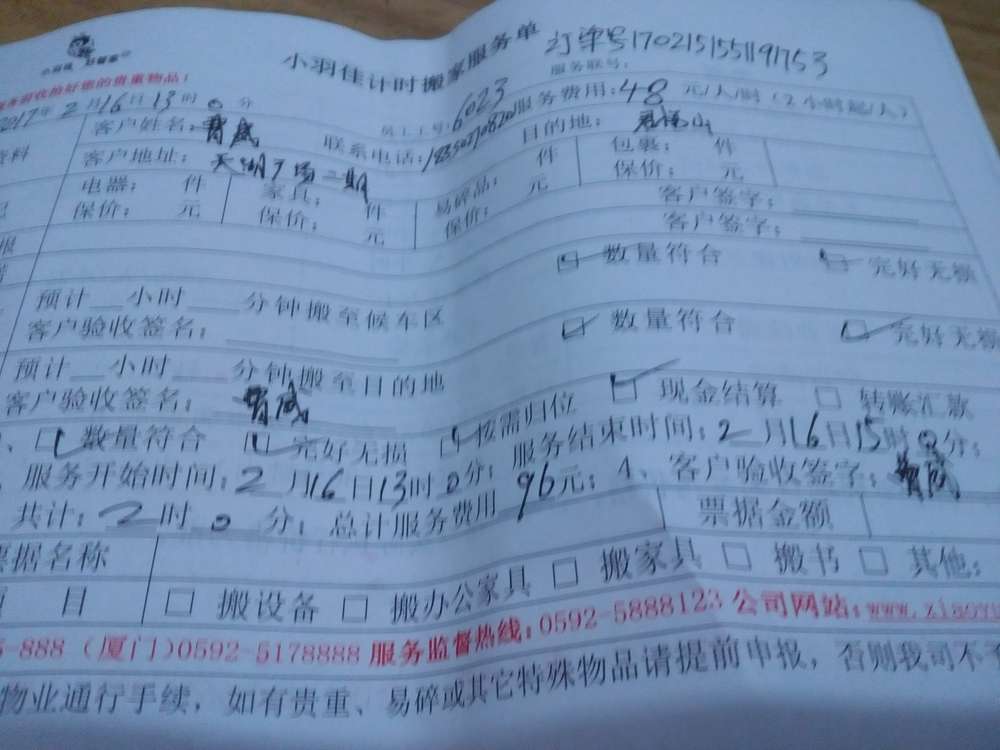 小羽佳计时搬家服务单 订单号170215155119753
验收捡好您的贵重物品! 服务联号:
2017年2月16日13时0分 员工工号:6023 服务费用:48 元/人/时(2小时起/人)
客户姓名: 联系电话:18350270820 目的地:
客户地址:天湖广场二期
电器: 件 家具: 件 易碎品: 件 包裹: 件
保价: 元 保价: 元 保价: 元 保价: 元
客户签字:
客户签字:
预计 小时 分钟搬至候车区 数量符合 完好无损
客户验收签名:
预计 小时 分钟搬至目的地 数量符合 完好无损
客户验收签名:
数量符合 完好无损 按需归位 现金结算 转账汇款
服务开始时间:2月16日13时0分; 服务结束时间:2月16日15时0分;
共计:2时0分;总计服务费用96元;4、客户验收签字:
票据名称 票据金额
项目 搬设备 搬办公家具 搬家具 搬书 其他:
5-888 (厦门)0592-5178888 服务监督热线:0592-5888123 公司网站:www.xiaoyu
物业通行手续,如有贵重、易碎或其它特殊物品请提前申报,否则我司不